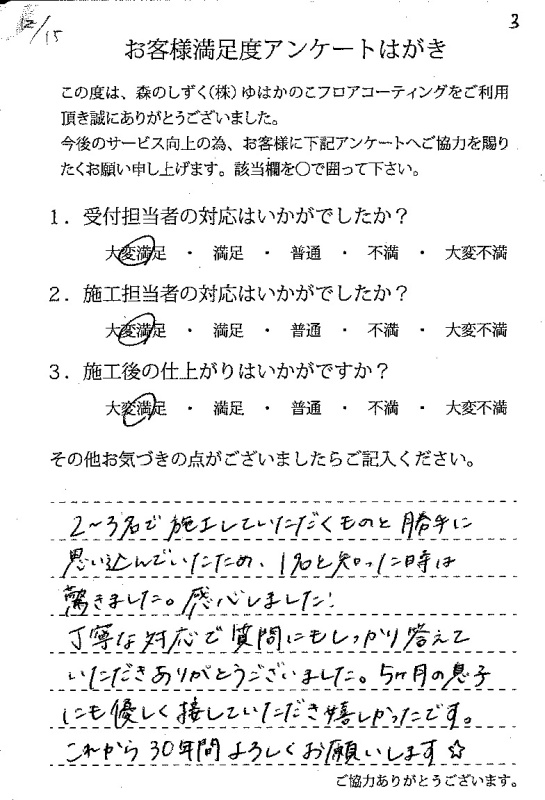 12/15
3
お客様満足度アンケートはがき
この度は、森のしずく(株)ゆはかのこフロアコーティングをご利用
頂き誠にありがとうございました。
今後のサービス向上の為、お客様に下記アンケートへご協力を賜り
たくお願い申し上げます。該当欄を〇で囲って下さい。
1．受付担当者の対応はいかがでしたか？
大変満足 ・ 満足 ・ 普通 ・ 不満 ・ 大変不満
2．施工担当者の対応はいかがでしたか？
大変満足 ・ 満足 ・ 普通 ・ 不満 ・ 大変不満
3．施工後の仕上がりはいかがですか？
大変満足 ・ 満足 ・ 普通 ・ 不満 ・ 大変不満
その他お気づきの点がございましたらご記入ください。
2〜3名で施工していただくものと勝手に
思い込んでいたため、1名と知った時は
驚きました。感心しました！
丁寧な対応で質問にもしっかり答えて
いただきありがとうございました。5ヶ月の息子
にも優しく接していただき嬉しかったです。
これから30年間よろしくお願いします☆
ご協力ありがとうございます。